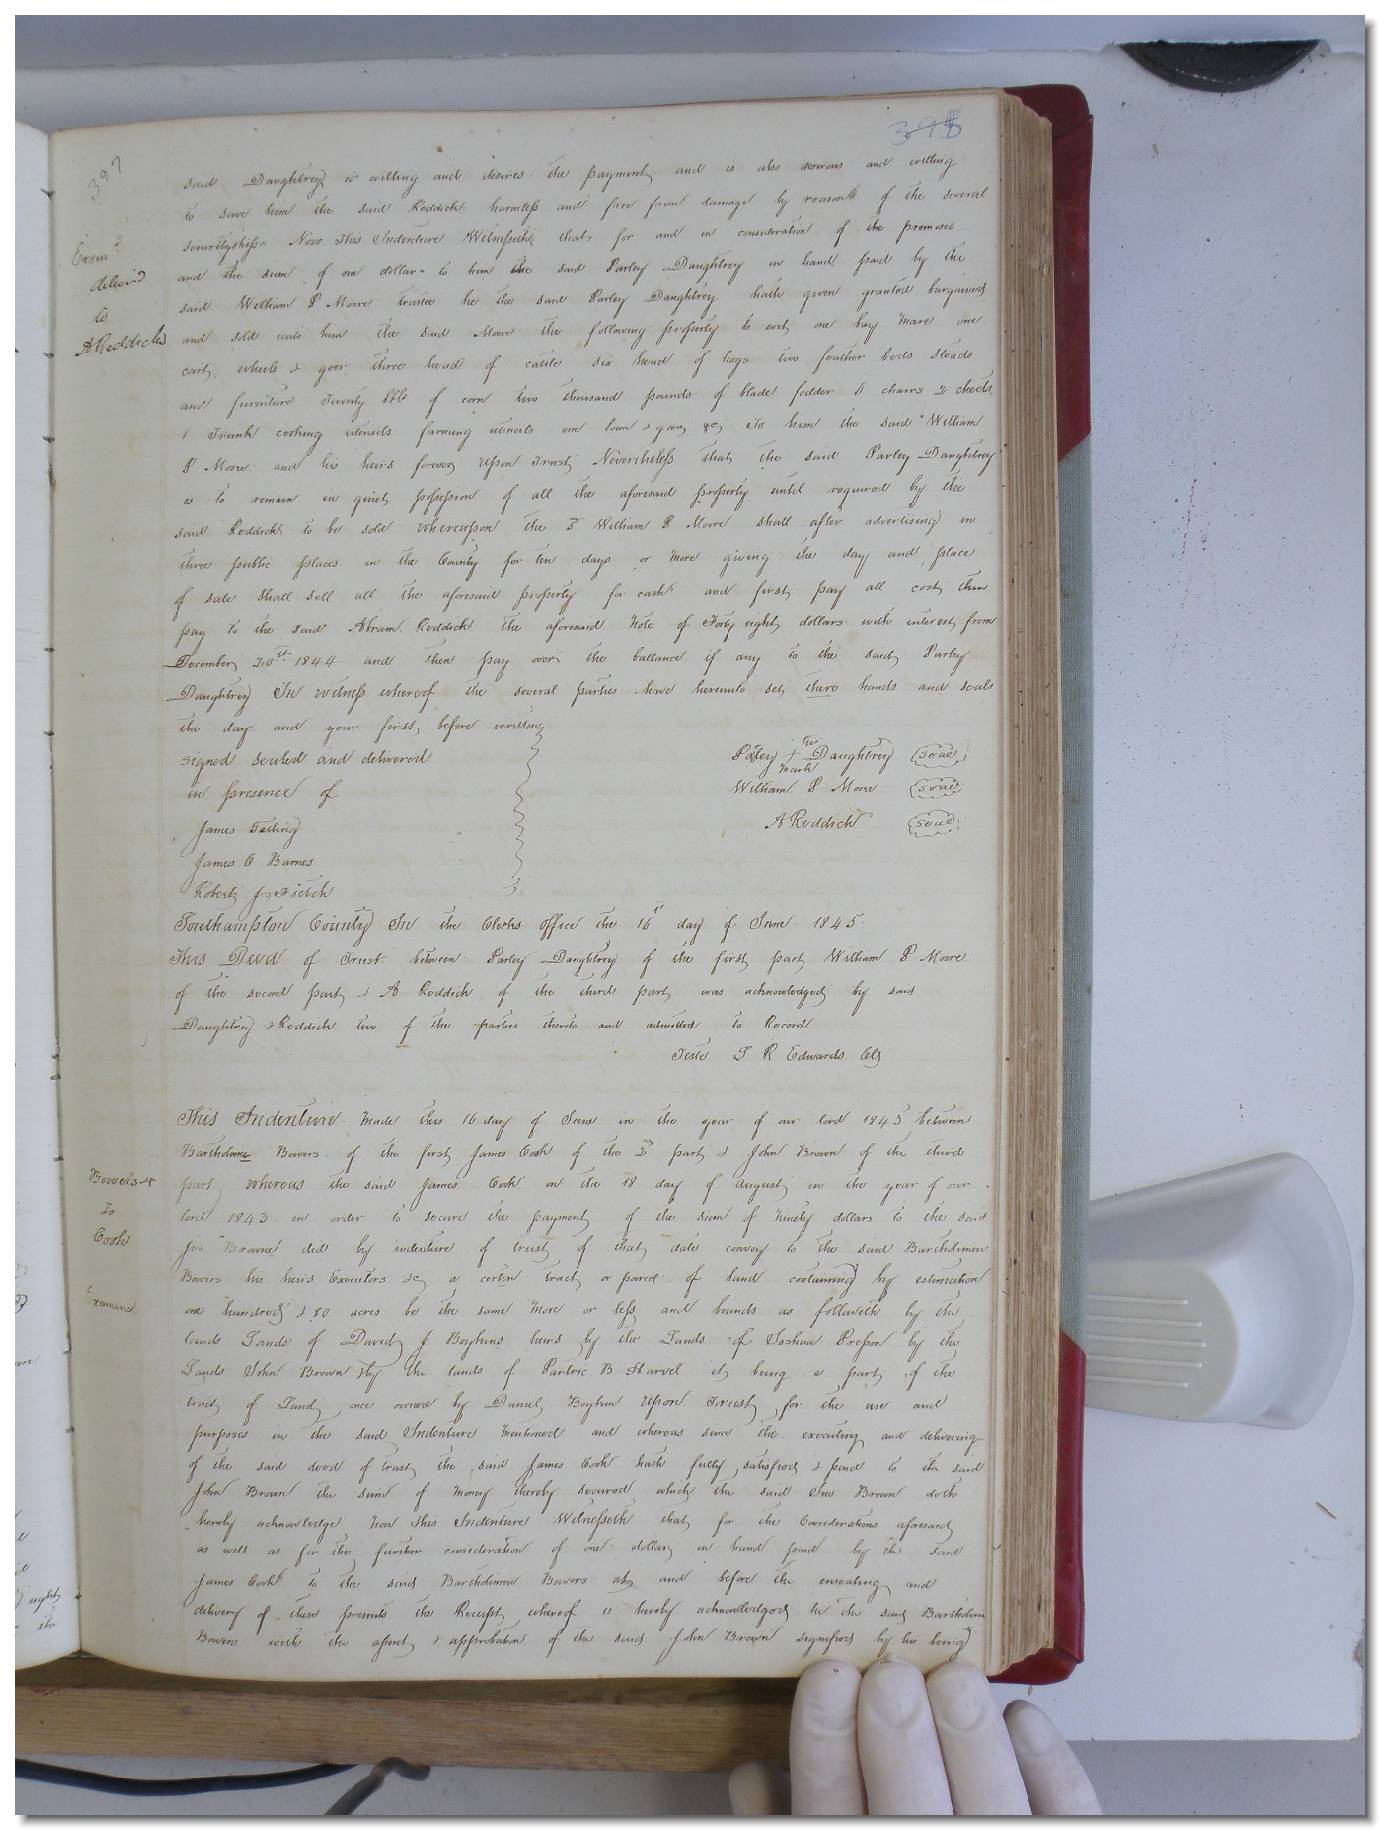 397
395
said Daughtrey is willing and desires the payment and is also desirous and willing
to save him the said Reddick harmless and free from damage by reason of the several
securityships Now This Indenture Witnesseth that for and in consideration of the premises
and the sum of one dollar to him the said Parley Daughtrey in hand paid by the
said William P Moore trustee he the said Parley Daughtrey hath given granted bargained
and sold unto him the said Moore the following property to wit, one bay Mare one
cart wheels & geer three head of cattle six head of hogs two feather beds steads
and furniture Twenty bbls of corn two thousand pounds of blade fodder 6 chairs 2 chests
1 Trunk cooking utensils farming utencils one loom & gear &c To him the said William
P Moore and his heirs forever Upon Trust Nevertheless that the said Parley Daughtrey
is to remain in quiet possession of all the aforesaid property until required by the
said Reddick to be sold whereupon the sd William P Moore shall after advertising in
three public places in the County for ten days or More giving the day and place
of sale shall sell all the aforesaid property for cash and first pay all cost then
pay to the said Abram Reddick the aforesaid Note of Forty eight dollars with interest from
December 20th 1844 and then pay over the ballance if any to the said Parley
Daughtrey In witness whereof the several parties have hereunto set there hands and seals
the day and year first before written
signed sealed and delivered
in presence of
James
James C Barnes
Robert
Parley his + mark Daughtrey (Seal)
William P Moore (Seal)
A Reddick (Seal)
Southampton County In the Clerks office the 16th day of June 1845
This Deed of Trust between Parley Daughtrey of the first part William P Moore
of the second part & A Reddick of the third part was acknowledged by said
Daughtrey & Reddick two of the parties thereto and admitted to Record
Teste L R Edwards Clk
Exam'd
delivered
to
A Reddick
This Indenture Made this 16 day of June in the year of our lord 1845 between
Bartholome Bowers of the first James Cook of the 2d part & John Brown of the third
part whereas the said James Cook on the 18 day of August in the year of our
lord 1843 in order to secure the payment of the sum of Ninety dollars to the said
Jno Browne did by indenture of trust of that date convey to the said Bartholimew
Bowers his heirs Executors &c a certin tract or parcel of land containing by estimation
one hundred & 80 acres be the same More or less and bounds as followeth by the
lands Lands of David J Boykins heirs by the Lands of Joshua Presson by the
Lands John Brown & by the lands of Partric B it being a part of the
tract of Land once owned by Daniel Boykin Upon Trust for the use and
purposes in the said Indenture Mentioned and whereas since the executing and delivering
of the said deed of trust the said James Cook hath fully satisfied & paid to the said
John Brown the sum of Money thereby secured which the said Jno Brown doth
hereby acknowledge Now This Indenture Witnesseth that for the Considerations aforesaid
as well as for the further consideration of one dollar in hand paid by the said
James Cook to the said Bartholimew Bowers at and before the ensealing and
delivery of these presents the Receipt whereof is hereby acknowledged he the said Bartholim
Bowers with the assent & approbation of the said John Brown signified by his being
Bowers
To
Cook
Examined